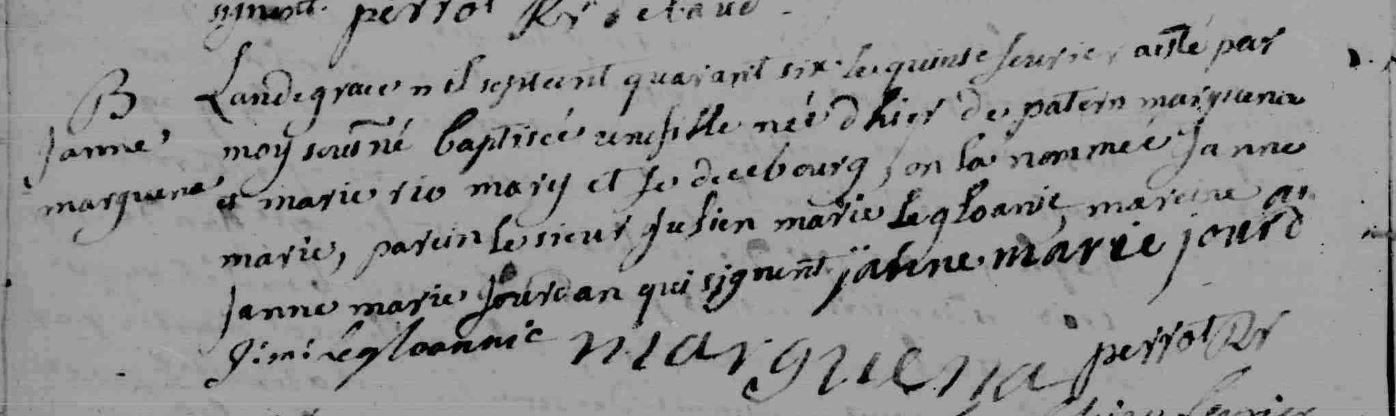 signent perrot Rr
B
Janne
marguena
Landegrace mil septcent quarant six le quinse fevrier a esté par
moy sousné baptiseé unefille neé dhier de patern marguena
et marie rio mary et fe de cebourg, on la nommeé Janne
marie, parein le sieur Julien marie le gloanic, mareine
Janne marie Jourdan qui signent janne marie jourd
J: m: Legloannic marguena perrot Rr
fevrier